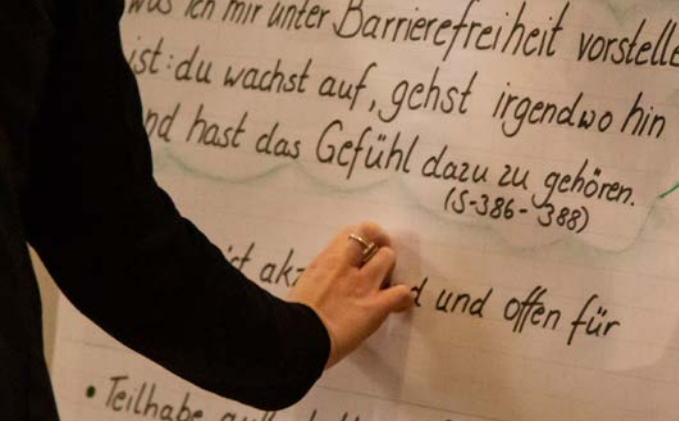 was ich mir unter Barrierefreiheit vorstelle
ist: du wachst auf, gehst irgendwo hin
und hast das Gefühl dazu zu gehören.
(S-386-388)
ist und offen für
• Teilhabe